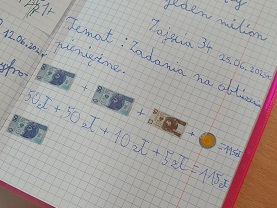 jeden milion
12.06.202
Zajęcia 34 25.06.2020r.
Temat: Zadania na obliczenia
pieniężne.
+ + + = 115zł
50zł + 50zł + 10zł + 5zł = 115zł